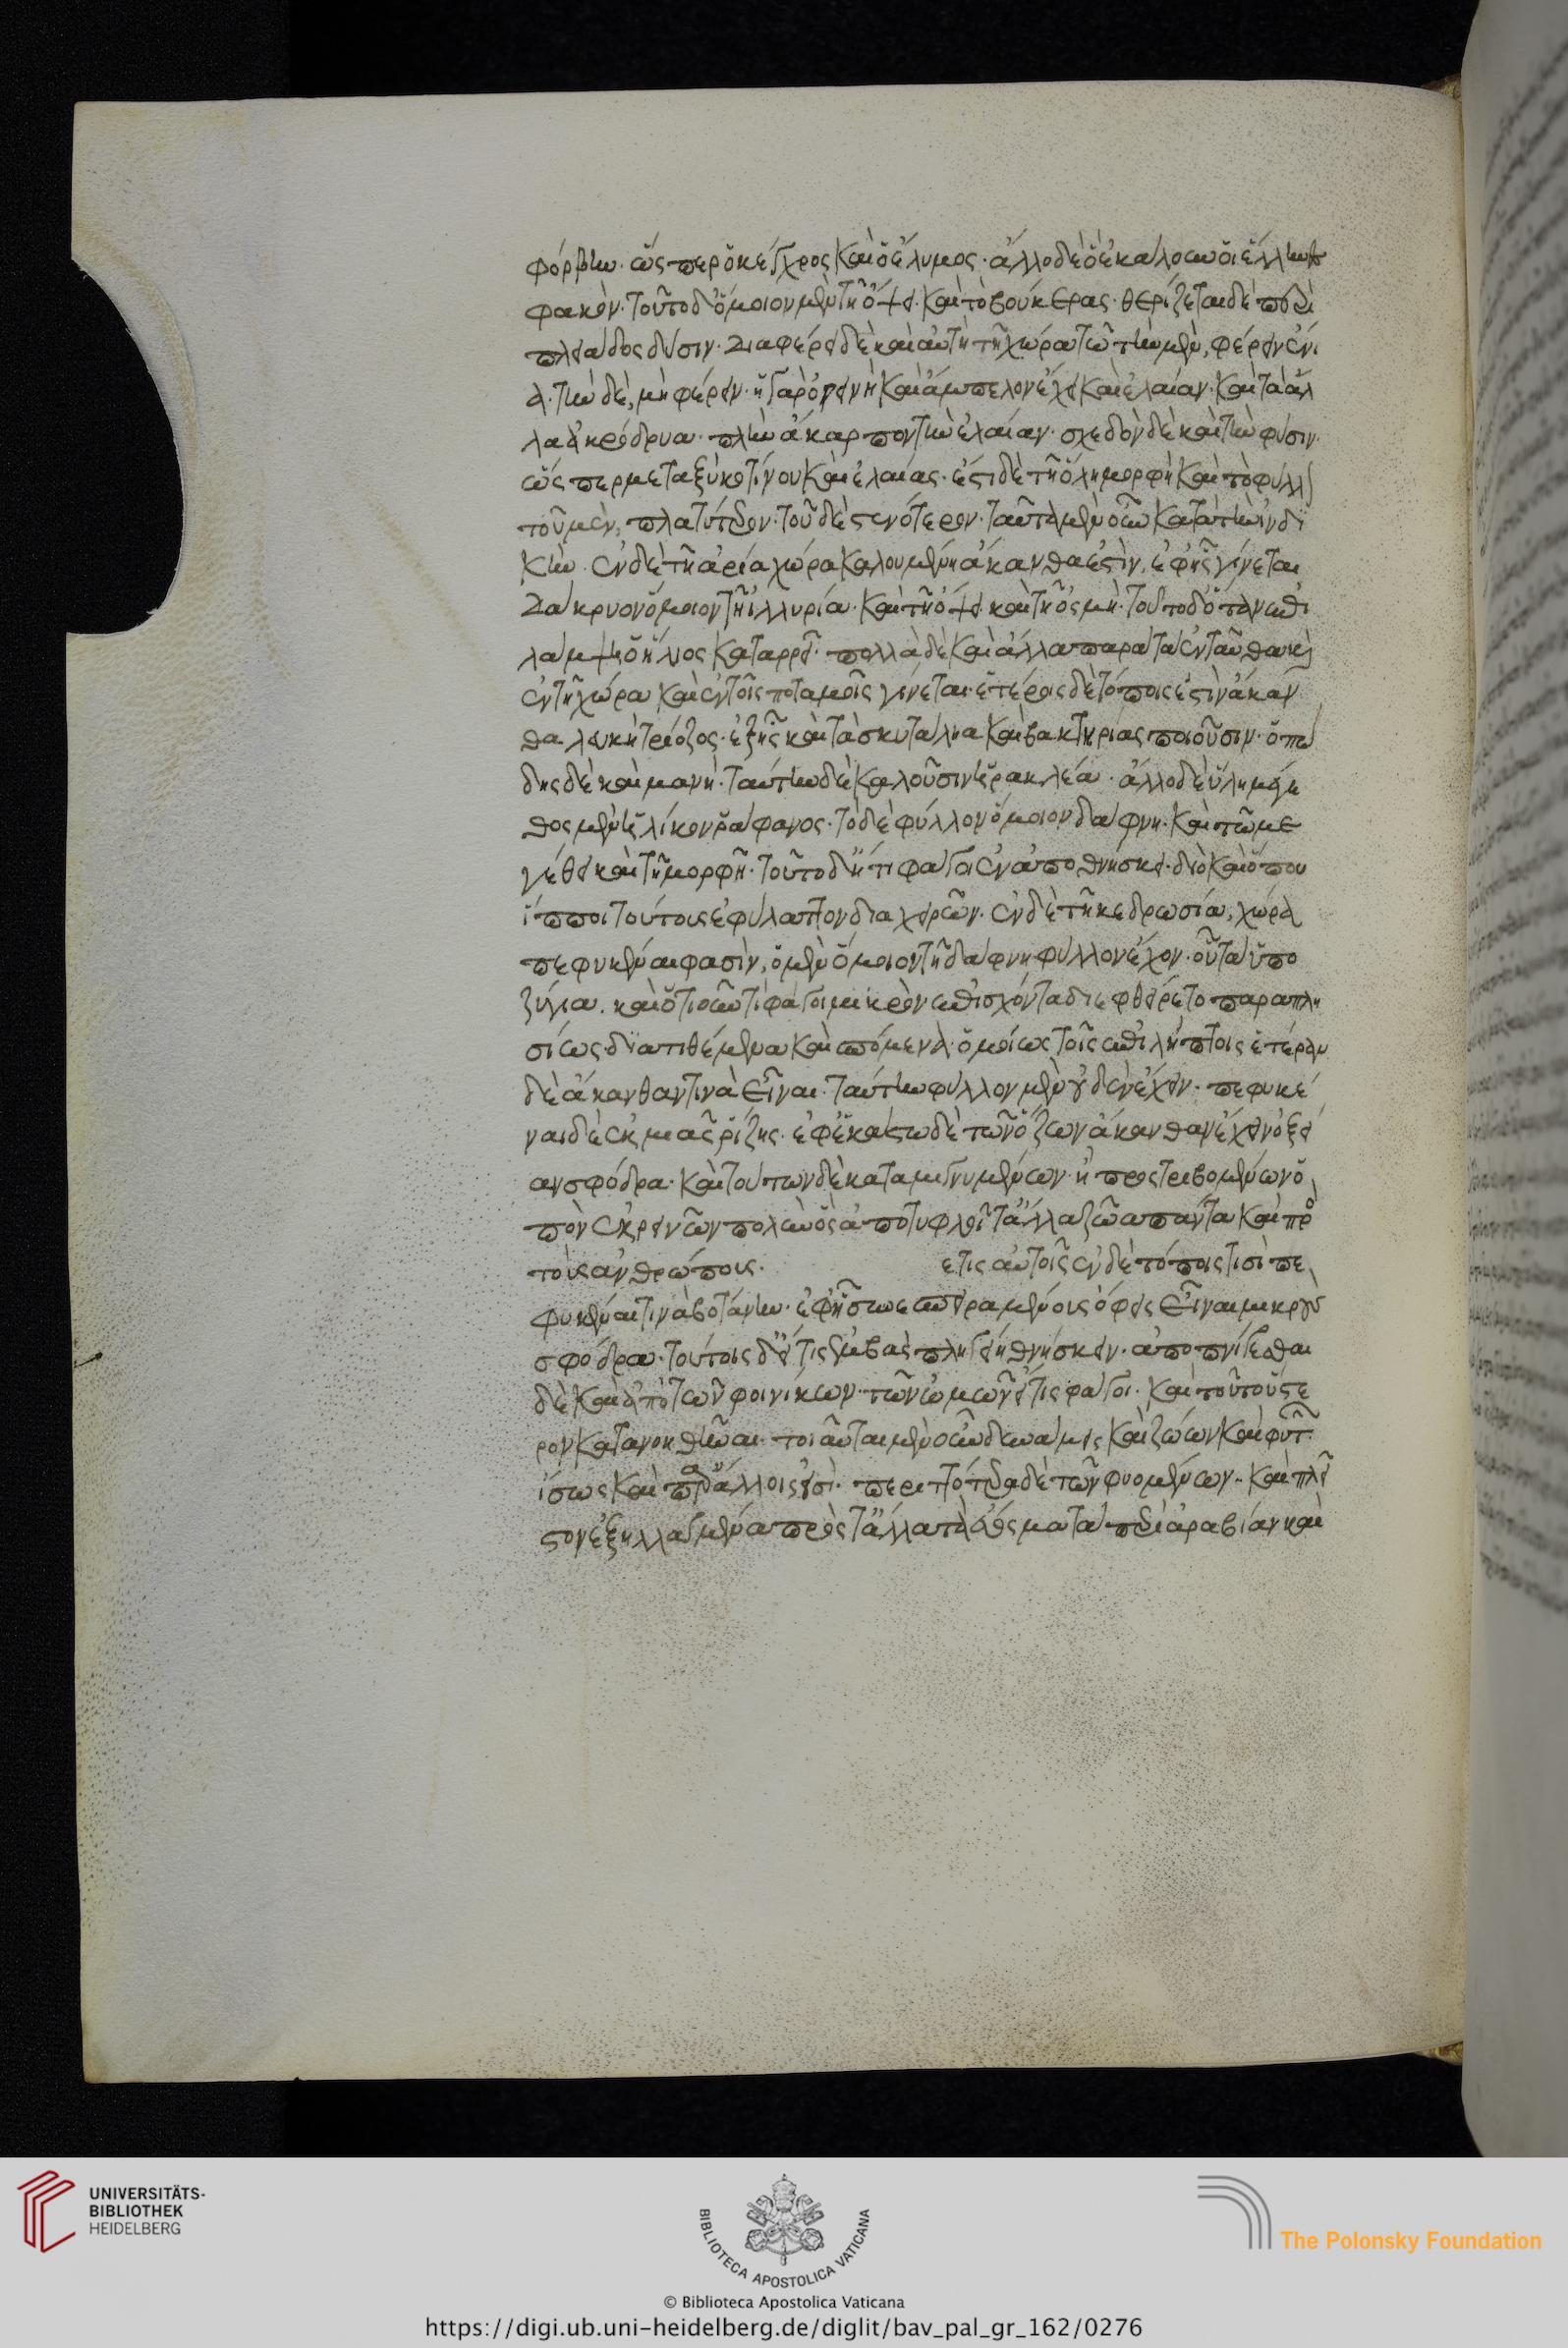 φόρβην. ὥς περ ὁ κέγχρος καὶ ὁ ἔλυμος. ἄλλο δὲ ὃ ἐκάλουν οἱ ἕλληνες
φακόν. τοῦτο δ' ὅμοιον μὲν τῇ ὄψει καὶ τὸ βούκερας. θερίζεται δὲ περὶ
πλειάδος δύσιν. διαφέρει δὲ καὶ αὐτὴ τῇ χώρα τῶ τὴν μὲν, φέρειν ἔνι
α. τὴν δὲ, μὴ φέρειν. ἡ γὰρ ὀρεινὴ καὶ ἄμπελον ἔχει καὶ ἐλαίαν. καὶ τὰ ἄλ
λα ἀκρόδρυα. πλὴν ἄκαρπον τὴν ἐλαίαν. σχεδὸν δὲ καὶ τὴν φύσιν.
ὥς περ μεταξὺ κοτίνου καὶ ἐλαίας. ἔστι δὲ τῇ ὅλη μορφῇ καὶ τὸ φύλλον
τοῦ μὲν, πλατύτερον. τοῦ δὲ στενότερον. ταῦτα μὲν οὖν κατὰ τὴν ἰνδι
κήν. ἐν δὲ τῇ ἀρία χώρα καλουμένη ἄκανθα ἐστὶν, ἐφ' ἧς γίνεται
δάκρυον ὅμοιον τῇ ἰλλυρία. καὶ τῇ ὄψει καὶ τῇ ὀσμῇ. τοῦτο δ' ὅταν ἐπι
λάμψη ὁ ἥλιος καταρρεῖ. πολλὰ δὲ καὶ ἄλλα παρὰ τὰ ἐνταῦθα καὶ
ἐν τῇ χώρα καὶ ἐν τοῖς ποταμοῖς γίνεται. ἑτέροις δὲ τόποις ἐστὶν ἄκαν
θα λευκὴ τρίοζος. ἐξ ἧς καὶ τὰ σκυτάλια καὶ βακτηρίας ποιοῦσιν. ὀπώ
δης δὲ καὶ μανή. ταύτην δὲ καλοῦσιν ἡρακλέα. ἄλλο δὲ ὕλημα μέγε
θος μὲν ἡλίκον ῥάφανος. τὸ δὲ φύλλον ὅμοιον δάφνη. καὶ τῶ με
γέθει καὶ τῇ μορφῇ. τοῦτο δ' εἴ τι φάγοι ἐναποθνήσκει. διὸ καὶ ὅπου
ἵπποι τούτους ἐφύλαττον διὰ χειρῶν. ἐν δὲ τῇ κεδρωσία, χώρα
πεφυκέναι φασὶν, ὃ μὲν ὅμοιον τῇ δάφνη φύλλον ἔχον. οὗ τὰ ὑπο
ζύγια. καὶ ὅτι οὖν τι φάγοι μικρὸν ἐπισχόντα διεφθείρετο παραπλη
σίως διατιθέμενα καὶ σπώμενα. ὁμοίως τοῖς ἐπιλήπτοις ἑτέραν
δὲ ἄκανθαν τινὰ εἶναι. ταύτην φύλλον μὲν οὐδὲν ἔχειν. πεφυκέ
ναι δὲ ἐκ μιᾶς ῥίζης. ἐφ' ἑκάστω δὲ τῶν ὄζων ἄκανθαν ἔχειν ὀξεῖ
αν σφόδρα. καὶ τούτων δὲ καταγνυμένων. ἢ προστριβομένων ὀ
πὸν ἐκρεῖν πολὺν ὃς ἀποτυφλοῖ τἄλλα ζῶα πάντα καὶ πρὸς
τοὺς ἀνθρώποις. ετις αὐτοῖς ἐν δὲ τόποις τισὶ πε
φυκέναι τινὰ βοτάνην. ἐφ' ᾗ συνεσπειραμένους ὄφεις εἶναι μικροὺς
σφόδρα. τούτοις δ' εἴ τις ἐμβὰς πληγείη θνήσκειν. ἀποπνίγεσθαι
δὲ καὶ ἀπὸ τῶν φοινίκων. τῶν ὠμῶν εἴ τις φάγοι. καὶ τοῦτο ὕστε
ρον κατανοηθῆναι. τοιαῦται μὲν οὖν δυνάμεις καὶ ζώων καὶ φυτῶν
ἴσως καὶ παρ' ἄλλοις εἰσὶ. περιττότερα δὲ τῶν φυομένων. καὶ πλεῖ
στον ἐξηλλαγμένα πρὸς τἄλλα τὰ εὔοσμα τὰ περὶ ἀραβίαν καὶ
UNIVERSITÄTS-
BIBLIOTHEK
HEIDELBERG
BIBLIOTECA APOSTOLICA VATICANA
The Polonsky Foundation
© Biblioteca Apostolica Vaticana
https://digi.ub.uni-heidelberg.de/diglit/bav_pal_gr_162/0276